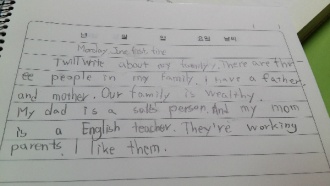 년 월 일 요일 날씨
Monday June fine
I will write about my family. There are thr
ee people in my family. I have a father
and mother. Our family is wealthy.
My dad is a sales person. And my mom
is a English teacher. They're working
parents. I like them.